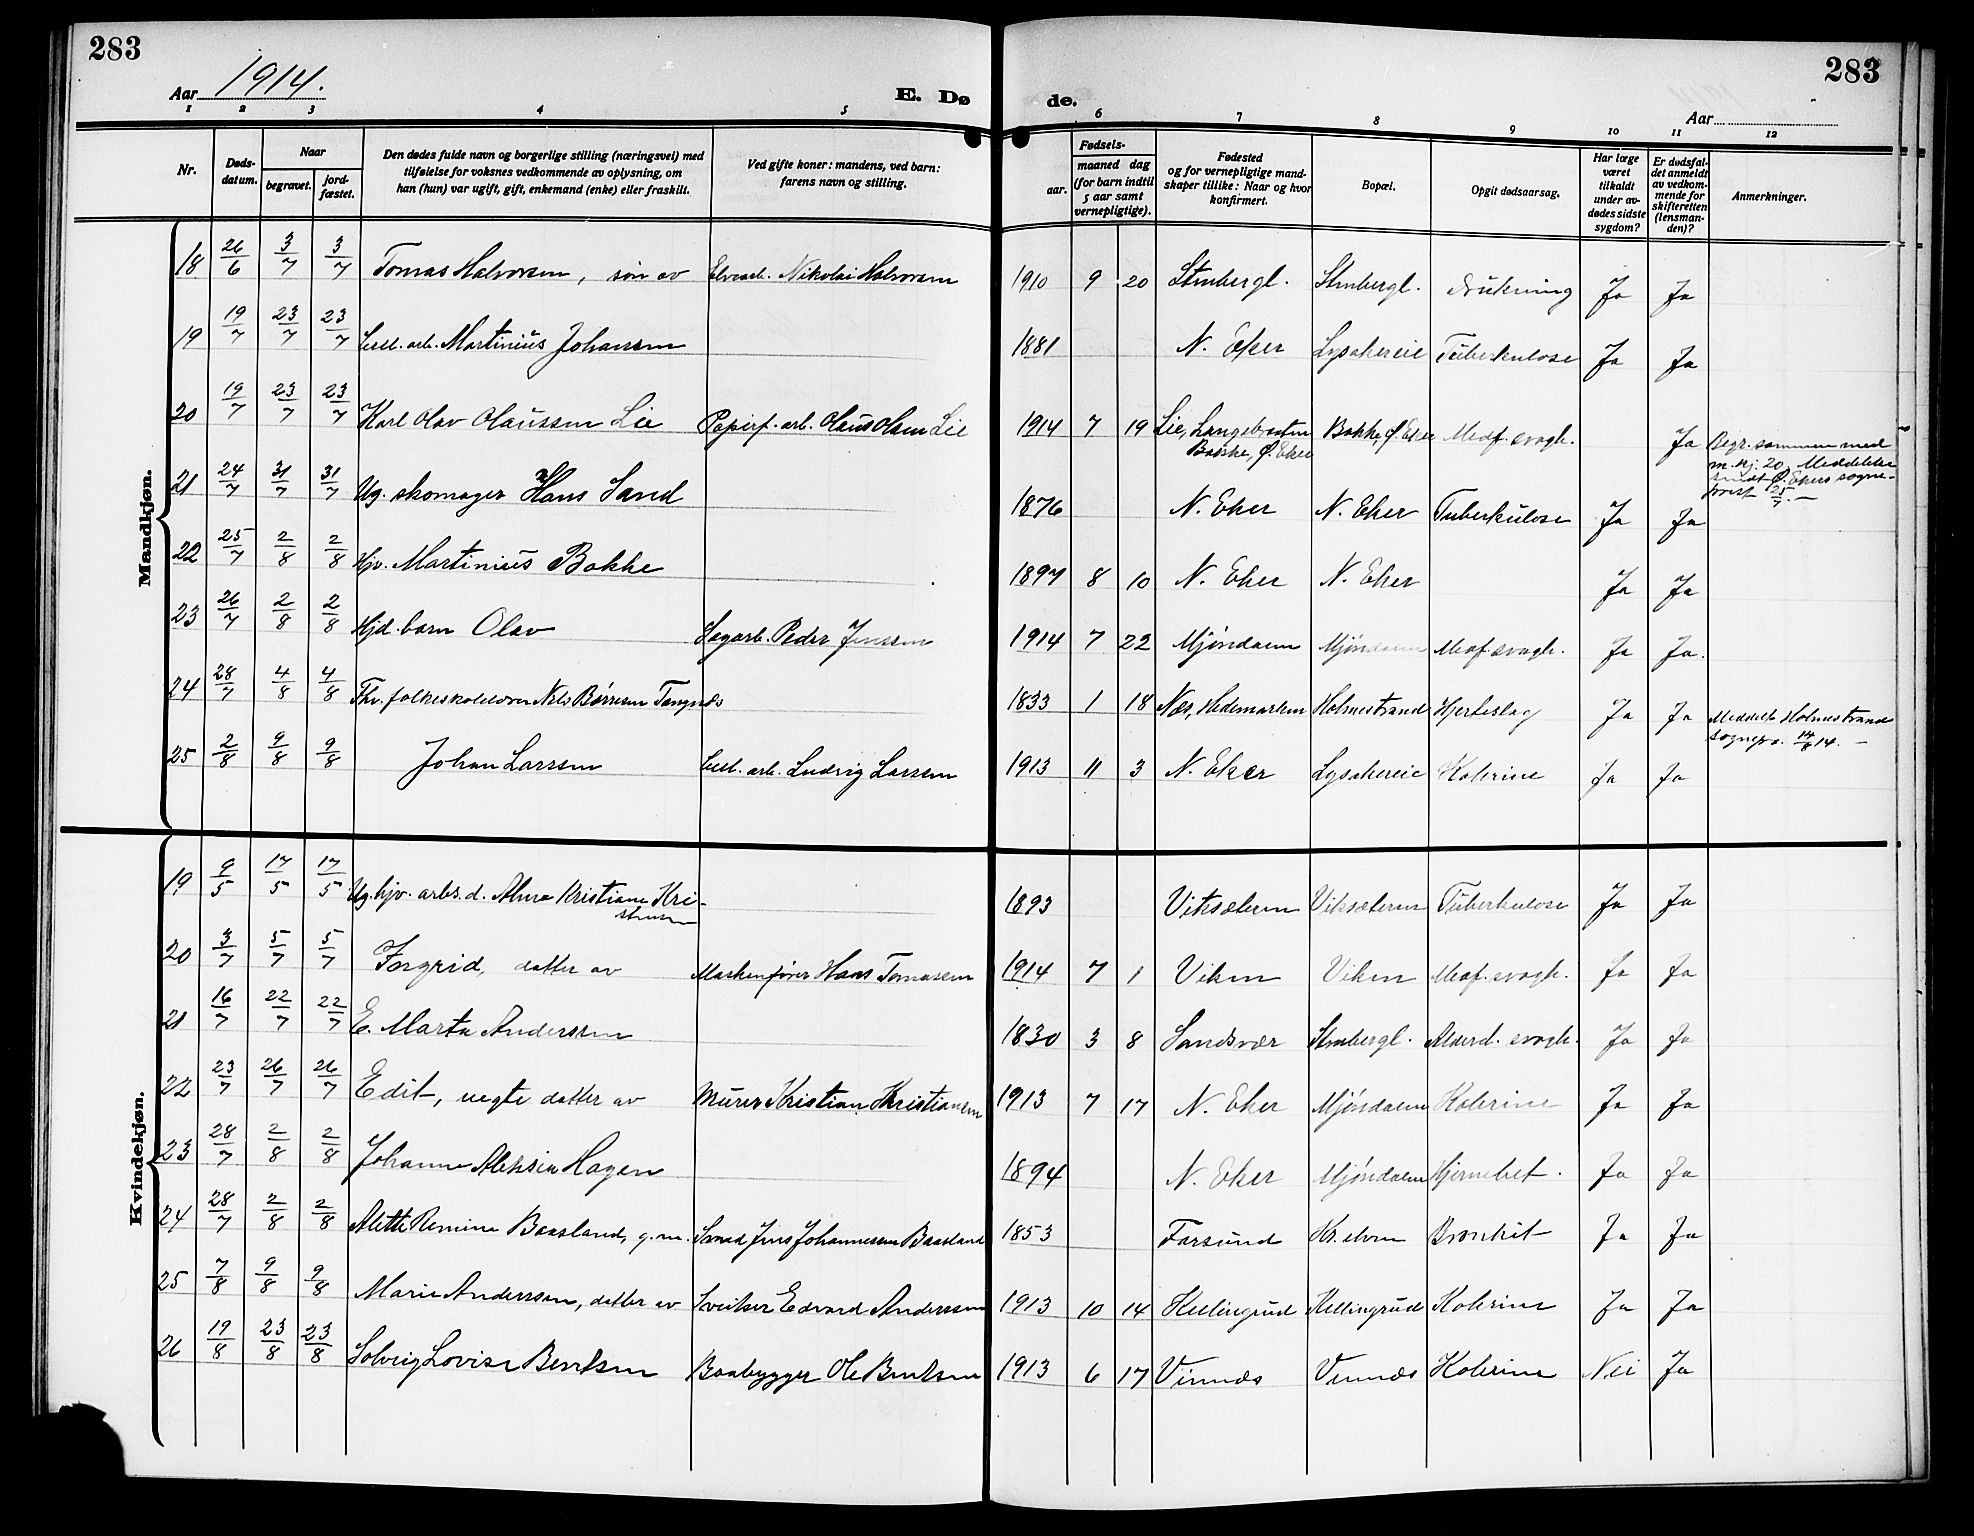 283
Aar 1914.
E. Dø
de.
283
Aar
1 2 3 4 5 6 7 8 9 10 11 12
Nr.
Døds-datum.
Naar
begravet.
jord-fæstet.
Den dødes fulde navn og borgerlige stilling (næringsvei) med
tilføielse for voksnes vedkommende av oplysning, om
han (hun) var ugift, gift, enkemand (enke) eller fraskilt.
Ved gifte koner: mandens, ved barn:
farens navn og stilling.
Fødsels-
aar.
maaned dag
(for barn indtil
5 aar samt
vernepligtige).
Fødested
og for vernepligtige mand-
skaper tillike: Naar og hvor
konfirmert.
Bopæl.
Opgit dødsaarsag.
Har læge
været
tilkaldt
under av-
dødes sidste
sygdom?
Er dødsfal-
det anmeldt
av vedkom-
mende for
skifteretten
(lensman-
den)?
Anmerkninger.
Mandkjøn.
18 26/6 3/7 3/7 Tomas Halvorsen, søn av Elvearb. Nikolai Halvorsen 1910 9 20 Stenbergl. Stenbergl. Drukning Ja Ja
19 19/7 23/7 23/7 Cell. arb. Martinius Johansen 1881 N. Eker Lysakereie Tuberkulose Ja Ja
20 19/7 23/7 23/7 Karl Olav Olaussen Lie Papirf. arb. Olaus Olsen Lie 1914 7 19 Lie, Langebraaten Bakke, Ø. Eker Bakke, Ø. Eker Medf. svagh. Ja Begr. sammen med
m. kj. 20. Meddelelse
sendt Ø. Ekers sogne-
prest 25/7. —
21 24/7 31/7 31/7 Ug. skomager Hans Sand 1876 N. Eker N. Eker Tuberkulose Ja Ja
22 25/7 2/8 2/8 Hjv. Martinius Bakke 1897 8 10 N. Eker N. Eker Ja Ja
23 26/7 2/8 2/8 Hjd. barn Olav Sagarb. Peder Jenssen 1914 7 22 Mjøndalen Mjøndalen Medf. svagh. Ja Ja.
24 28/7 4/8 4/8 Fhv. folkeskolelærer Nils Børresen Tangnæs 1833 1 18 Næs, Hedemarken Holmestrand Hjerteslag Ja Ja Meddelt Holmestrand
sognepr. 14/8 14. —
25 2/8 9/8 9/8 Johan Larssen Cell. arb. Ludvig Larssen 1913 11 3 N. Eker Lysakereie Kolerine Ja Ja
Kvindekjøn.
19 9/5 17/5 17/5 Ug. hjv. arb. d. Alma Kristiane Kri-
stensen 1893 Viksæteren Viksæteren Tuberkulose Ja Ja
20 3/7 5/7 5/7 Ingrid, datter av Maskenfører Hans Tomassen 1914 7 1 Viken Viken Medf. svagh. Ja Ja
21 16/7 22/7 22/7 E. Marta Anderssen 1830 3 8 Sandsvær Stenbergl. Alderd. svagh. Ja Ja
22 23/7 26/7 26/7 Edit, uegte datter av Murer Kristian Kristiansen 1913 7 17 N. Eker Mjøndalen Kolerine Ja Ja
23 28/7 2/8 2/8 Johanne Aleksia Hagen 1894 N. Eker Mjøndalen Hjernebet. Ja Ja
24 28/7 2/8 2/8 Alette Remine Baasland, g. m. Smed Jens Johannessen Baasland 1853 Farsund Kr. elven Bronkit Ja Ja
25 7/8 9/8 9/8 Marie Anderssen, datter av Sveitser Edvard Anderssen 1913 10 14 Killingrud Killingrud Kolerine Ja Ja
26 19/8 23/8 23/8 Solveig Lovise Bentsen Baatbygger Ole Bentsen 1913 6 17 Vinnæs Vinnæs Kolerine Nei Ja